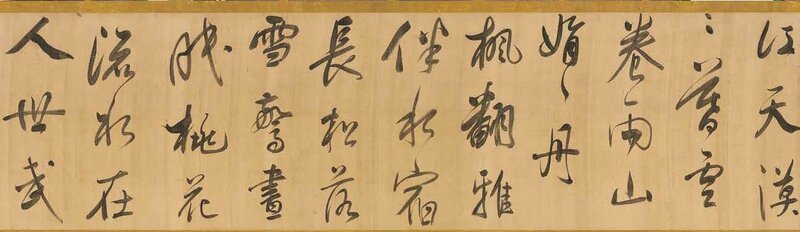 江天漠
〻暮雲
卷雨山
娟〻丹
楓翻雅
伴水宿
長松落
雪驚晝
眠桃花
流水在
人世武